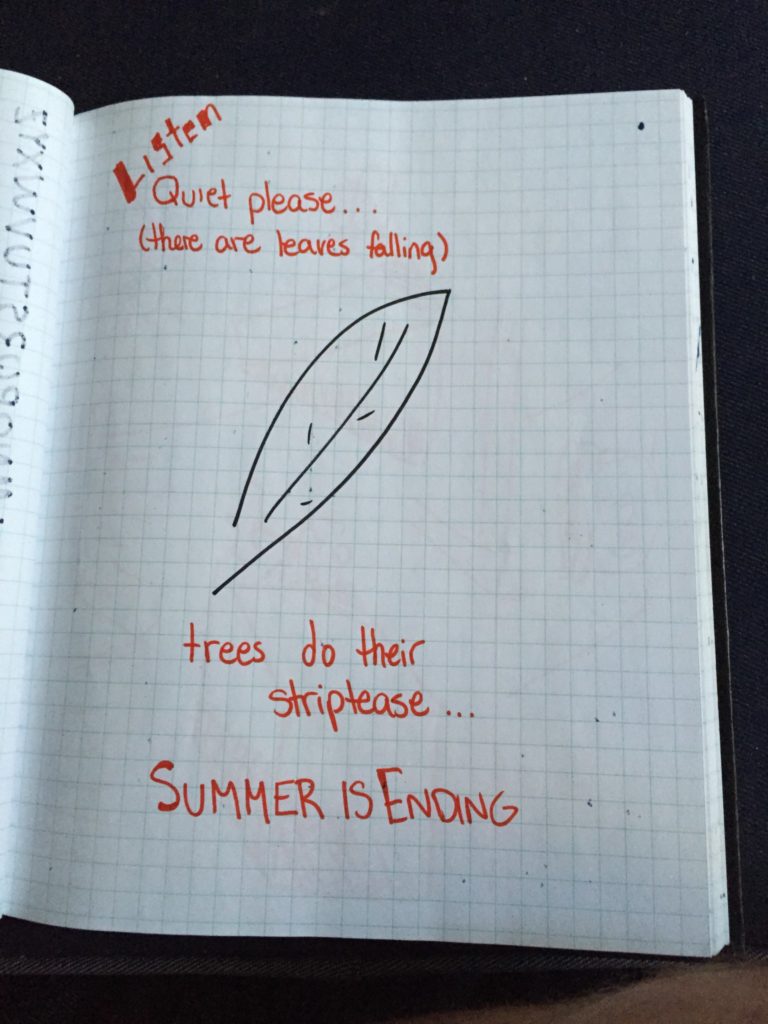 Listen
Quiet please...
(there are leaves falling)
trees do their
striptease...
SUMMER IS ENDING